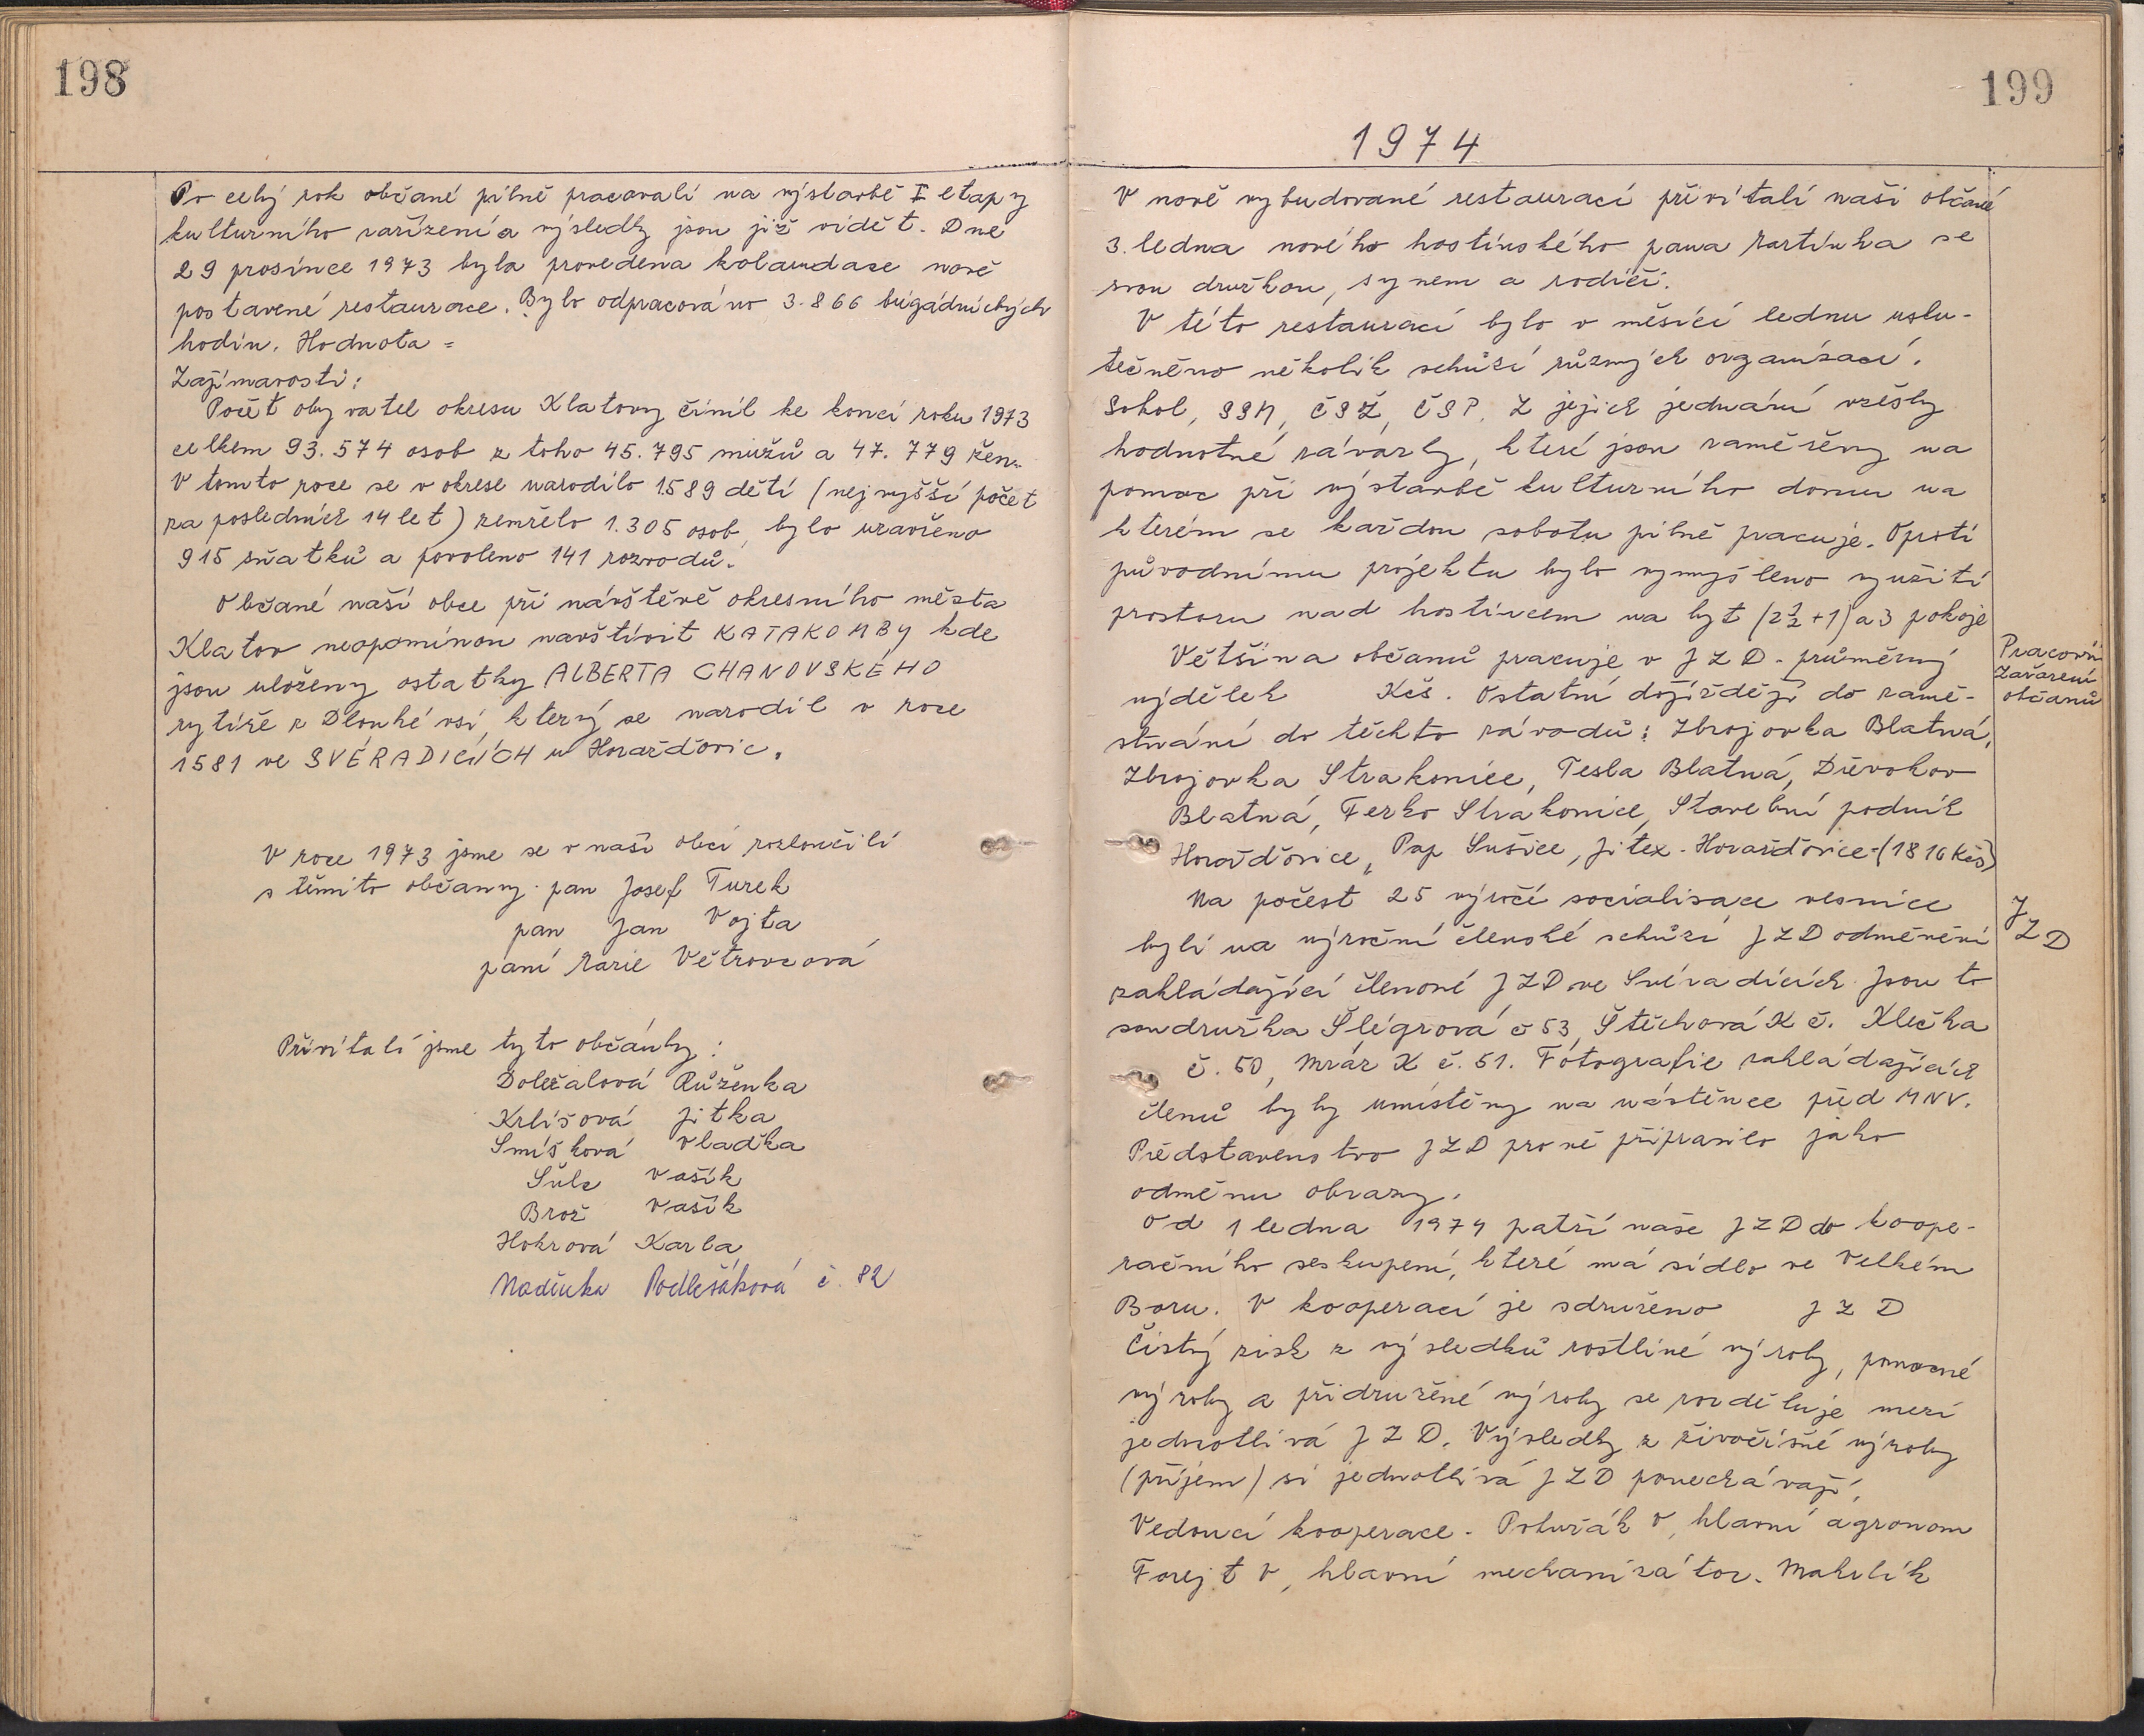 198
Po celý rok občané pilně pracovali na výstavbě I etapy
kulturního zařízení a výsledky jsou již vidět. Dne
29 prosince 1973 byla provedena kolaudace nově
postavené restaurace. Bylo odpracováno 3.866 brigádnických
hodin. Hodnota =
Zajímavosti:
Počet obyvatel okresu Klatovy činil ke konci roku 1973
celkem 93.574 osob z toho 45.795 mužů a 47.779 žen.
V tomto roce se v okrese narodilo 1589 dětí (nejvyšší počet
za posledních 14 let) zemřelo 1.305 osob, bylo uzavřeno
915 sňatků a povoleno 141 rozvodů.
Občané naší obce při návštěvě okresního města
Klatov neopominou navštívit KATAKOMBY kde
jsou uloženy ostatky ALBERTA CHANOVSKÉHO
rytíře z Dlouhé vsi, který se narodil v roce
1581 ve SVÉRADICÍCH u Horažďovic.
V roce 1973 jsme se v naší obci rozloučili
s těmito občany. pan Josef Turek
pan Jan Vojta
paní Marie Větrovcová
Přivítali jsme tyto občánky:
Doležalová Růženka
Krlišová Jitka
Smíšková Vlaďka
Šulc Vašík
Brož Vašík
Hokrová Karla
Naďinka Podlešáková č. 82
199
1974
V nově vybudované restauraci přivítali naši občané
3. ledna nového hostinského pana Martínka se
svou družkou, synem a rodiči.
V této restauraci bylo v měsíci lednu usku-
tečněno několik schůzí různých organizací.
Sokol, SSM, ČSŽ, ČSP. Z jejich jednání vzešly
hodnotné závazky, které jsou zaměřeny na
pomoc při výstavbě kulturního domu na
kterém se každou sobotu pilně pracuje. Oproti
původnímu projektu bylo vymyšleno využití
prostoru nad hostincem na byt (2½+1) a 3 pokoje
Většina občanů pracuje v JZD. průměrný
výdělek Kčs. Ostatní dojíždějí do zamě-
stnání do těchto závodů: Zbrojovka Blatná,
Zbrojovka Strakonice, Tesla Blatná, Dřevokov
Blatná, Fezko Strakonice, Stavební podnik
Horažďovice, Pap Sušice, Jitex-Horažďovice-(1816 Kčs)
Pracovní
Zařazení
občanů
Na počest 25 výročí socialisace vesnice
byli na výroční členské schůzi JZD odměněni
zakládající členové JZD ve Svéradicích Jsou to
soudružka Šlégrová č 53, Štěchová K č. Klečka
č. 50, Mráz K č. 51. Fotografie zakládajících
členů byly umístěny na nástěnce před MNV.
Představenstvo JZD pro ně připravilo jako
odměnu obrazy.
JZD
Od 1 ledna 1974 patří naše JZD do koope-
račního seskupení, které má sídlo ve Velkém
Boru. V kooperaci je sdruženo JZD
Čistý zisk z výsledků rostliné výroby, pomocné
výroby a přidružené výroby se rozděluje mezi
jednotlivá JZD. Výsledky z živočišné výroby
(příjem) si jednotlivá JZD ponechávají.
Vedoucí kooperace. V, hlavní agronom
Forejt V, hlavní mechanizátor. Makrlík